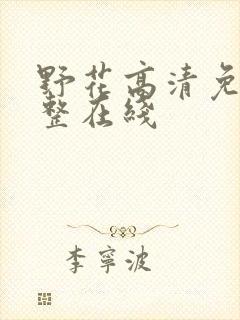 野花高清免
整在线
李宁波